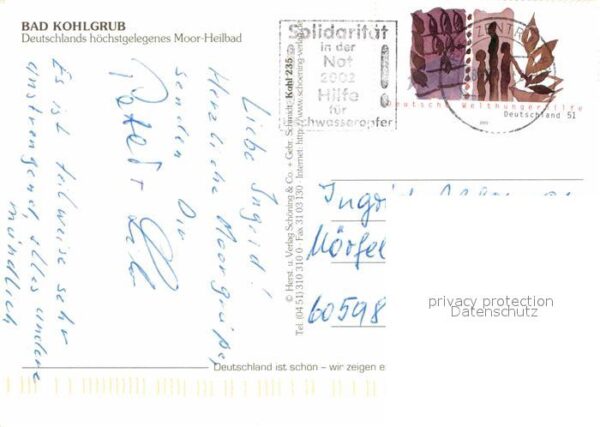 BAD KOHLGRUB
Deutschlands höchstgelegenes Moor-Heilbad
Liebe Ingrid!
Herzliche Moorgrüße
senden Dir
Peter +
Es ist teilweise sehr
anstrengend, alles andere
mündlich
© Herst. u. Verlag Schöning & Co. + Gebr. Schmidt Kohl 235
Tel. (04 51) 310 310 0 · Fax 31 03 130 · Internet: http://www.schoening-verlag.de
Solidarität
in der
Not
2002
Hilfe
für
Hochwasseropfer
ZENTR
Deutsche Welthungerhilfe
Deutschland 51
Ingrid
Mörfel
60598
privacy protection
Datenschutz
Deutschland ist schön – wir zeigen e